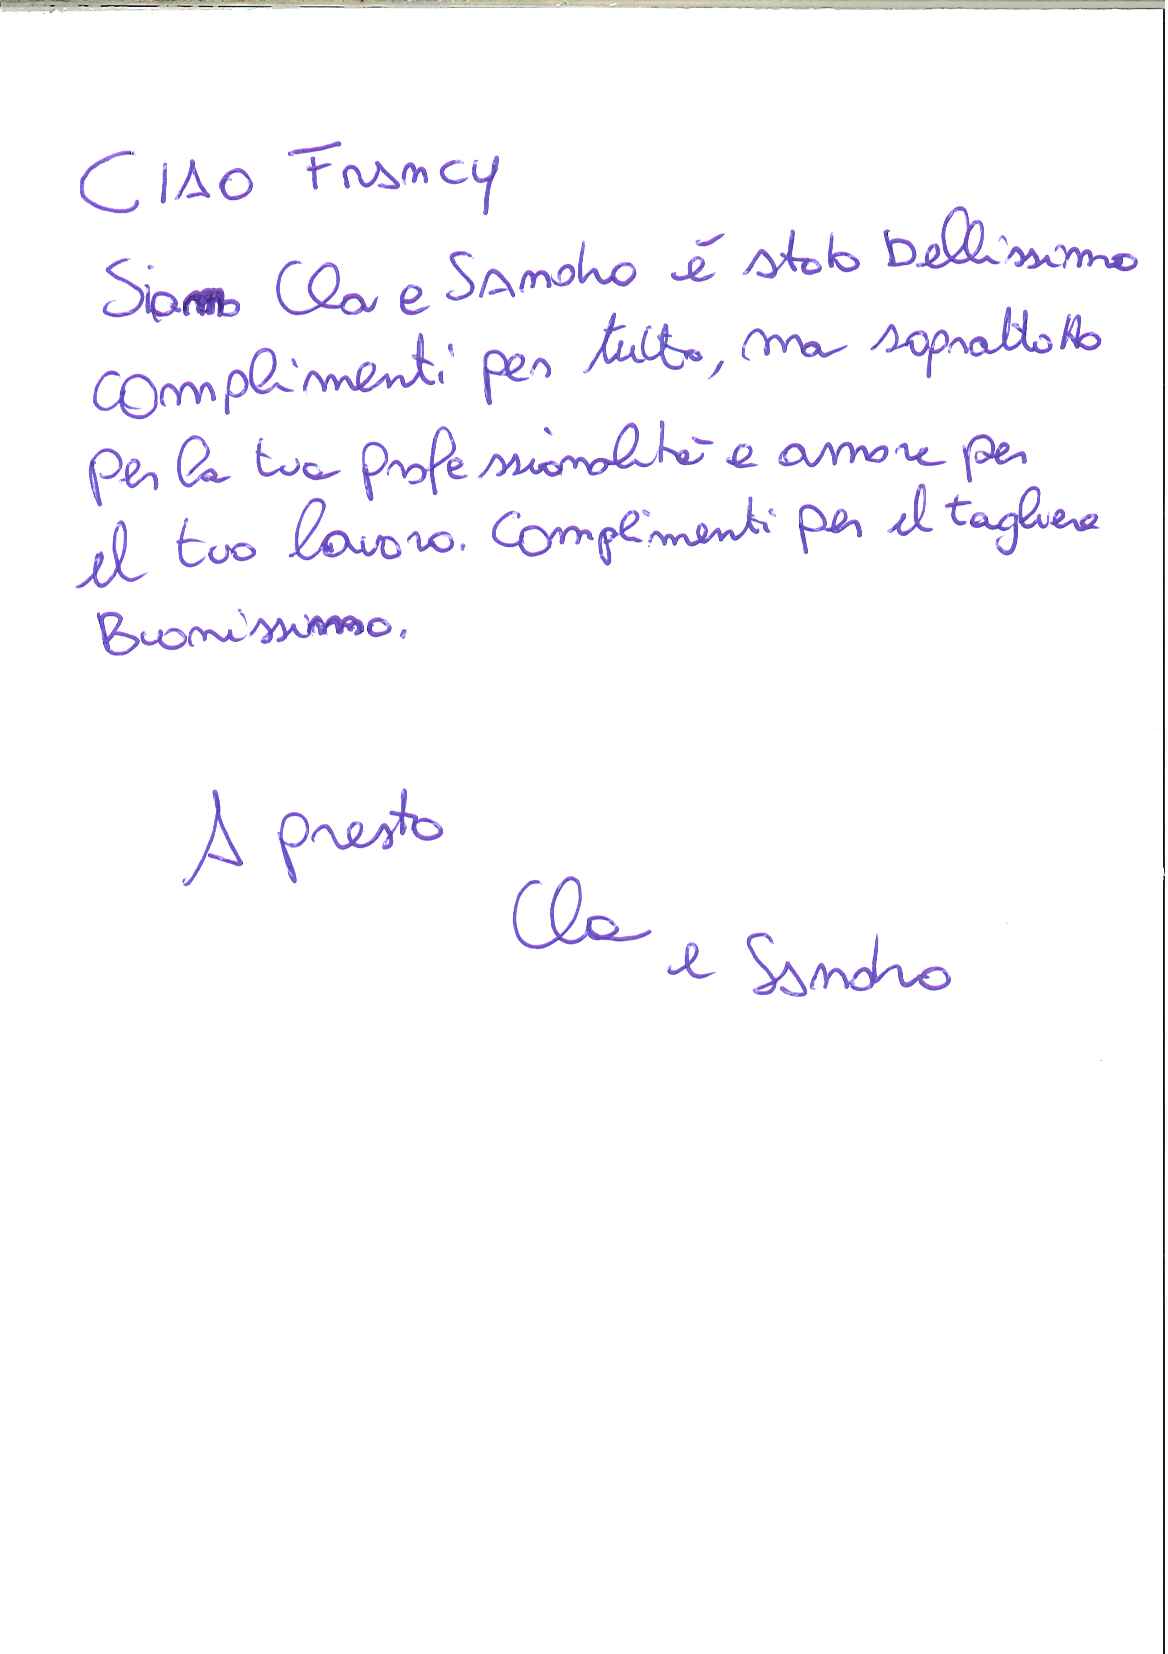 CIAO Francy
Siamo Cla e Sandro è stato Bellissimo
complimenti per tutto, ma soprattotto
per la tua professionalità e amore per
il tuo lavoro. Complimenti per il tagliere
Buonissimo.
A presto
Cla e Sandro